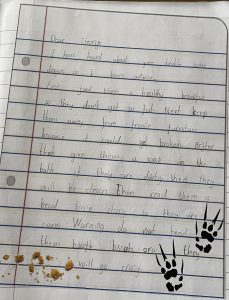 Dear George
I have heard about you trolls were
down so I have advice.
First feed them a healthy breakfast
so they dont get a hot. Next keep
them away from fragile furniture
because it could get broken. After
that give them a wash in the
bath if they are dirty then they
will be clean. Then read them a
bead time story so they are
calm. Warning do not feed
them bright biscuits are then
will go crazy.